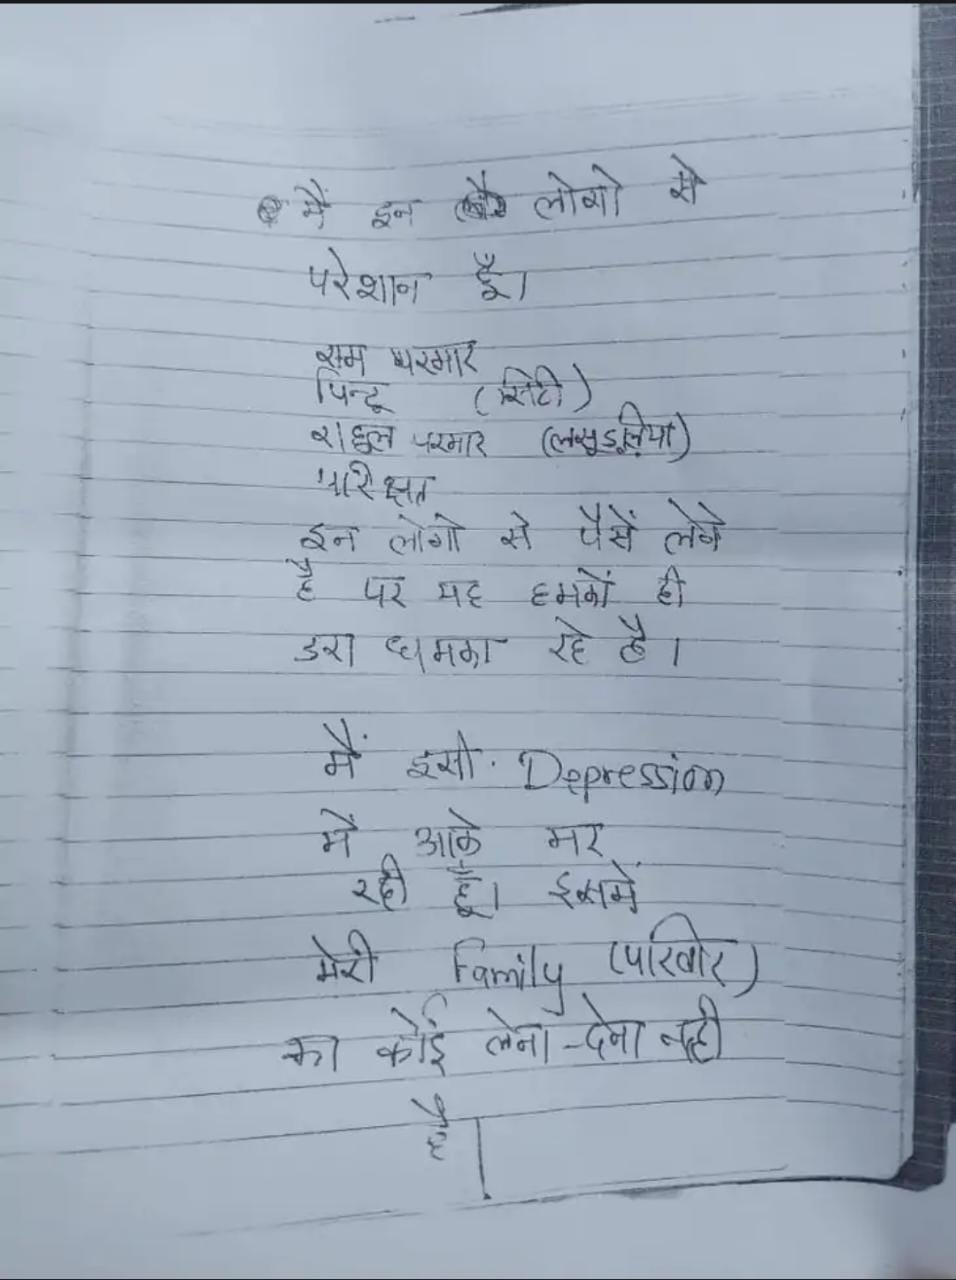 मैं इन लोगो से
परेशान हूँ।
राम परमार
पिन्टू (सिटी)
राहुल परमार (लसूडलिया)
परिक्षत
इन लोगो से पैसें लेने
है पर यह हमकों ही
डरा धमका रहे है।
मैं इसी Depression
में आके मर
रही हूँ। इसमें
मेरी Family (परिवार)
का कोई लेना-देना नही
है।